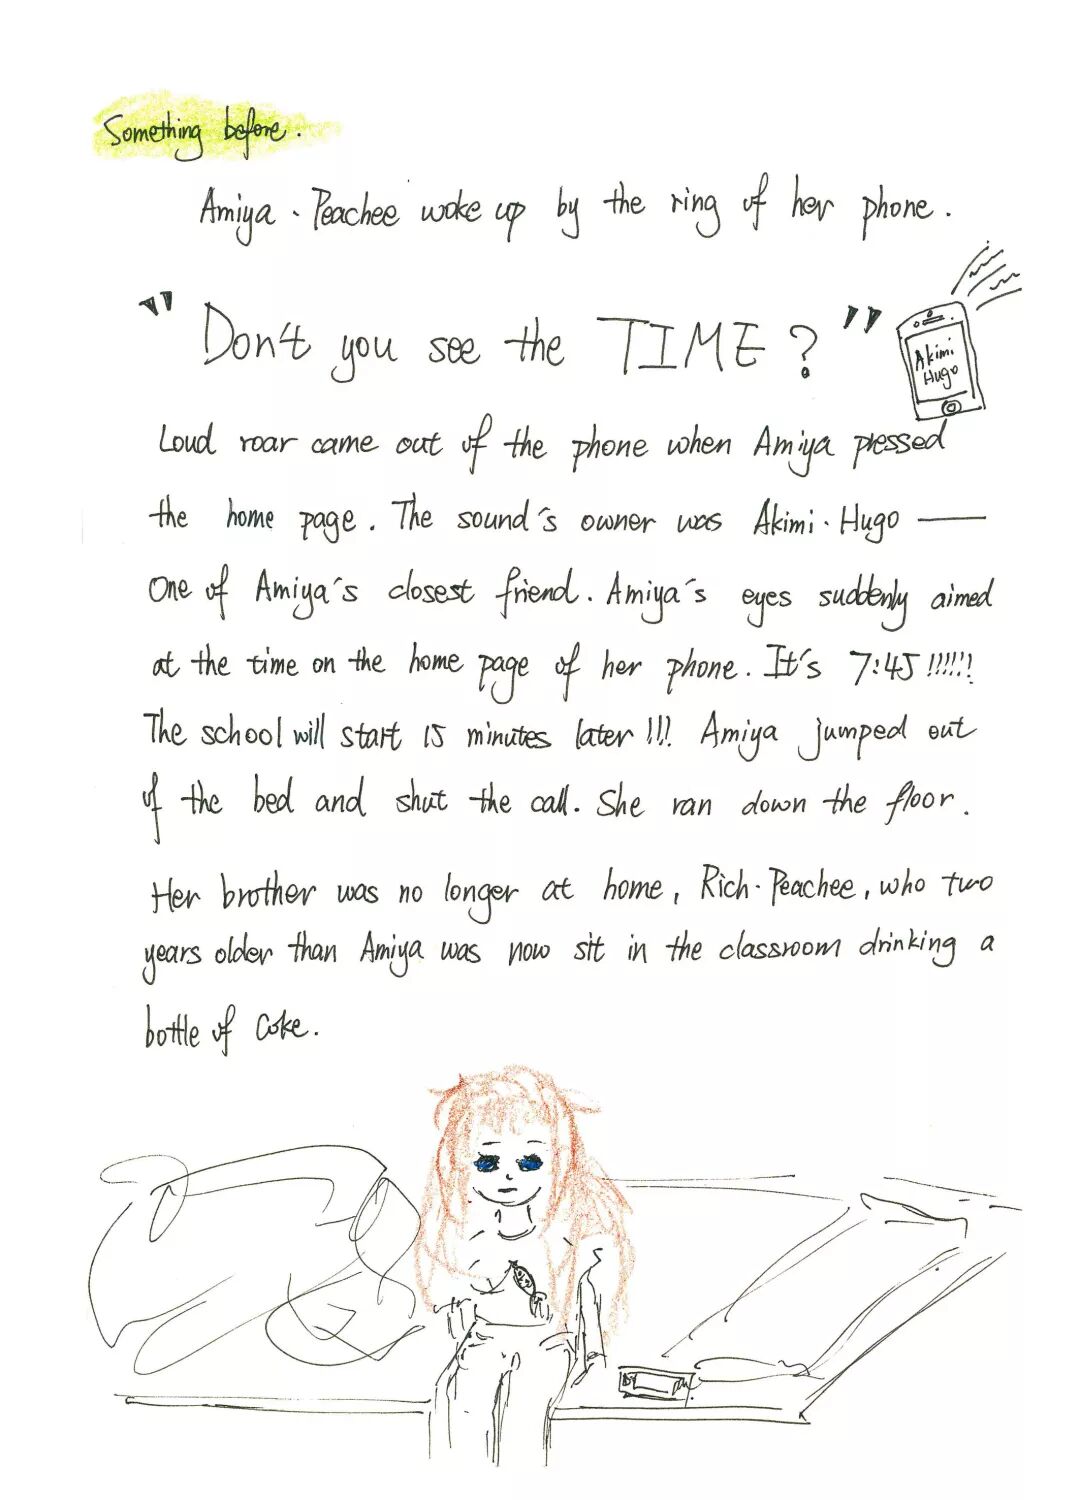 Something before.
Amiya · Peachee woke up by the ring of her phone.
"Don't you see the TIME?"
Akimi
Hugo
Loud roar came out of the phone when Amiya pressed
the home page. The sound's owner was Akimi · Hugo ——
One of Amiya's closest friend. Amiya's eyes suddenly aimed
at the time on the home page of her phone. It's 7:45!!!!!!
The school will start 15 minutes later!!! Amiya jumped out
of the bed and shut the call. She ran down the floor.
Her brother was no longer at home, Rich · Peachee, who two
years older than Amiya was now sit in the classroom drinking a
bottle of Coke.